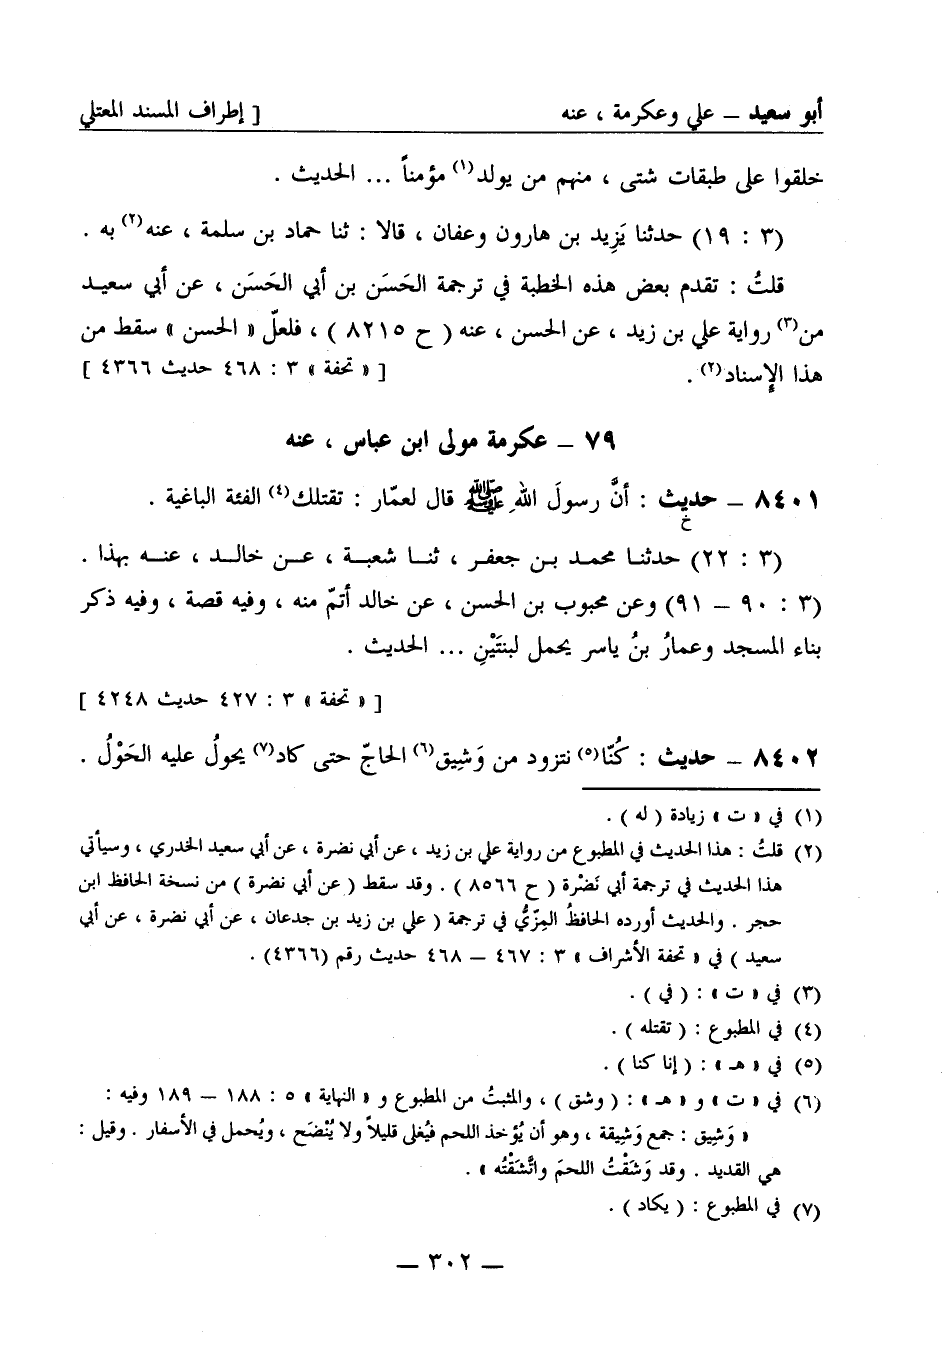 أبو سعيد – علي وعكرمة ، عنه [ إطراف المسند المعتلي
خلقوا على طبقات شتى ، منهم من يولد(١) مؤمناً ... الحديث .
(٣ : ١٩) حدثنا يَزِيد بن هارون وعفان ، قالا : ثنا حماد بن سلمة ، عنه(٢) به .
قلتُ : تقدم بعض هذه الخطبة في ترجمة الحَسَن بن أبي الحَسَن ، عن أبي سعيد
من(٣) رواية علي بن زيد ، عن الحسن ، عنه ( ح ٨٢١٥ ) ، فلعلّ « الحسن » سقط من
هذا الإسناد(٢) . [ « تحفة » ٣ : ٤٦٨ حديث ٤٣٦٦ ]
٧٩ – عكرمة مولى ابن عباس ، عنه
٨٤٠١ – حديث : أنَّ رسولَ اللهِ ﷺ قال لعمّار : تقتلك(٤) الفئة الباغية .
خ
(٣ : ٢٢) حدثنا محمد بن جعفر ، ثنا شعبة ، عن خالد ، عنه بهذا .
(٣ : ٩٠ – ٩١) وعن محبوب بن الحسن ، عن خالد أتمّ منه ، وفيه قصة ، وفيه ذكر
بناء المسجد وعمارُ بنُ ياسر يحمل لبنتَيْنِ ... الحديث .
[ « تحفة » ٣ : ٤٢٧ حديث ٤٢٤٨ ]
٨٤٠٢ – حديث : كُنّا(٥) نتزود من وَشِيق(٦) الحاجّ حتى كاد(٧) يحولُ عليه الحَوْلُ .
(١) في « ت » زيادة ( له ) .
(٢) قلتُ : هذا الحديث في المطبوع من رواية علي بن زيد ، عن أبي نضرة ، عن أبي سعيد الخدري ، وسيأتي
هذا الحديث في ترجمة أبي نَضْرة ( ح ٨٥٦٦ ) . وقد سقط ( عن أبي نضرة ) من نسخة الحافظ ابن
حجر . والحديث أورده الحافظُ المِزّيُّ في ترجمة ( علي بن زيد بن جدعان ، عن أبي نضرة ، عن أبي
سعيد ) في « تحفة الأشراف » ٣ : ٤٦٧ – ٤٦٨ حديث رقم (٤٣٦٦) .
(٣) في « ت » : ( في ) .
(٤) في المطبوع : ( تقتله ) .
(٥) في « هـ » : ( إنا كنا ) .
(٦) في « ت » و « هـ » : ( وشق ) ، والمثبتُ من المطبوع و « النهاية » ٥ : ١٨٨ – ١٨٩ وفيه :
« وَشِيق : جمع وَشِيقة ، وهو أن يُؤخذ اللحم فيُغلى قليلاً ولا يُنْضَح ، ويُحمل في الأسفار . وقيل :
هي القديد . وقد وَشَقْتُ اللحمَ واتَّشَقْتُه » .
(٧) في المطبوع : ( يكاد ) .
– ٣٠٢ –